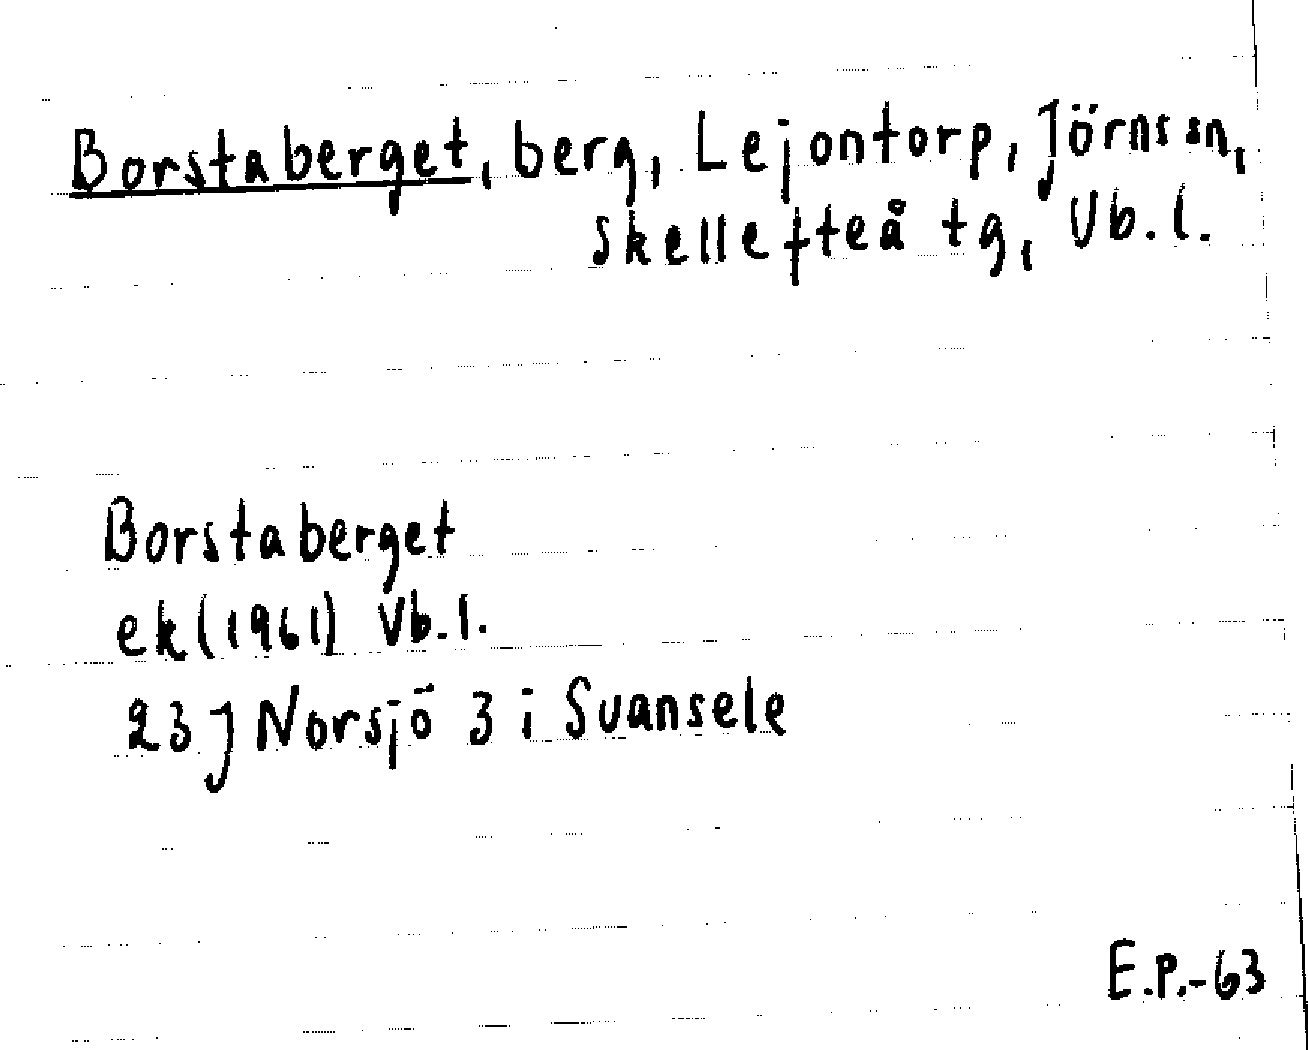 Borstaberget, berg, Lejontorp, Jörns sn,
Skellefteå tg, Vb.l.
Borstaberget
ek(1961) Vb.l.
23 J Norsjö 3 i Svansele
E.P.-63